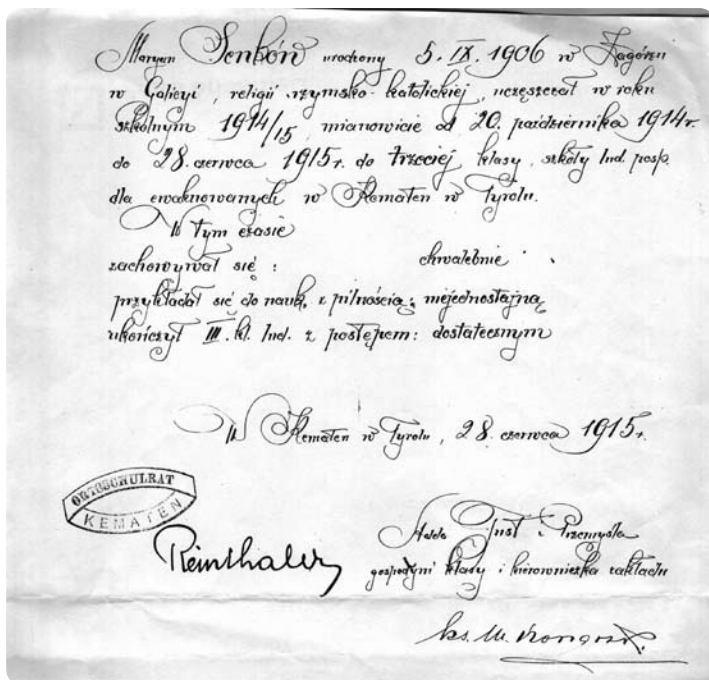 Maryan Senków urodzony 5. IX. 1906 w Zagórzu
w Galicyi, religii rzymsko-katolickiej, uczęszczał w roku
szkolnym 1914/15, mianowicie od 20. października 1914 r.
do 28. czerwca 1915 r. do trzeciej klasy szkoły lud. posp.
dla ewakuowanych w Kematen w Tyrolu.
W tym czasie
zachowywał się: chwalebnie.
przykładał się do nauk, z pilnością: niejednostajną
ukończył III. kl. lud. z postępem: dostatecznym
W Kematen w Tyrolu, 28. czerwca 1915 r.
ORTSSCHULRAT
KEMATEN
Reinthaler
Just z Przemyśla
gospodyni klasy i kierowniczka zakładu
ks. M.